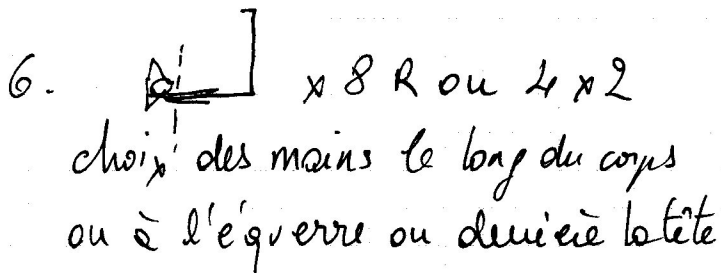 6. x 8 R ou 4 x 2
choix des mains le long du corps
ou à l'équerre ou derrière la tête